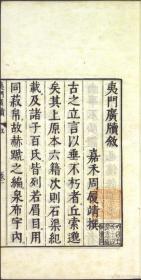 夷門廣牘敘
嘉禾周履靖撰
古之立言以垂不朽者丘索邈
矣其上原本六籍次則石渠紀
載及諸子百氏昔列若眉目用
同菽帛故赫蹏之編泉布宇內